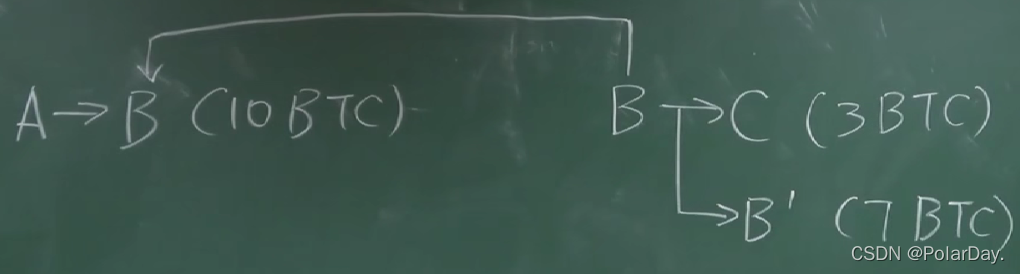 A→B (10 BTC) B→C (3 BTC)
→B' (7 BTC)
CSDN @PolarDay.